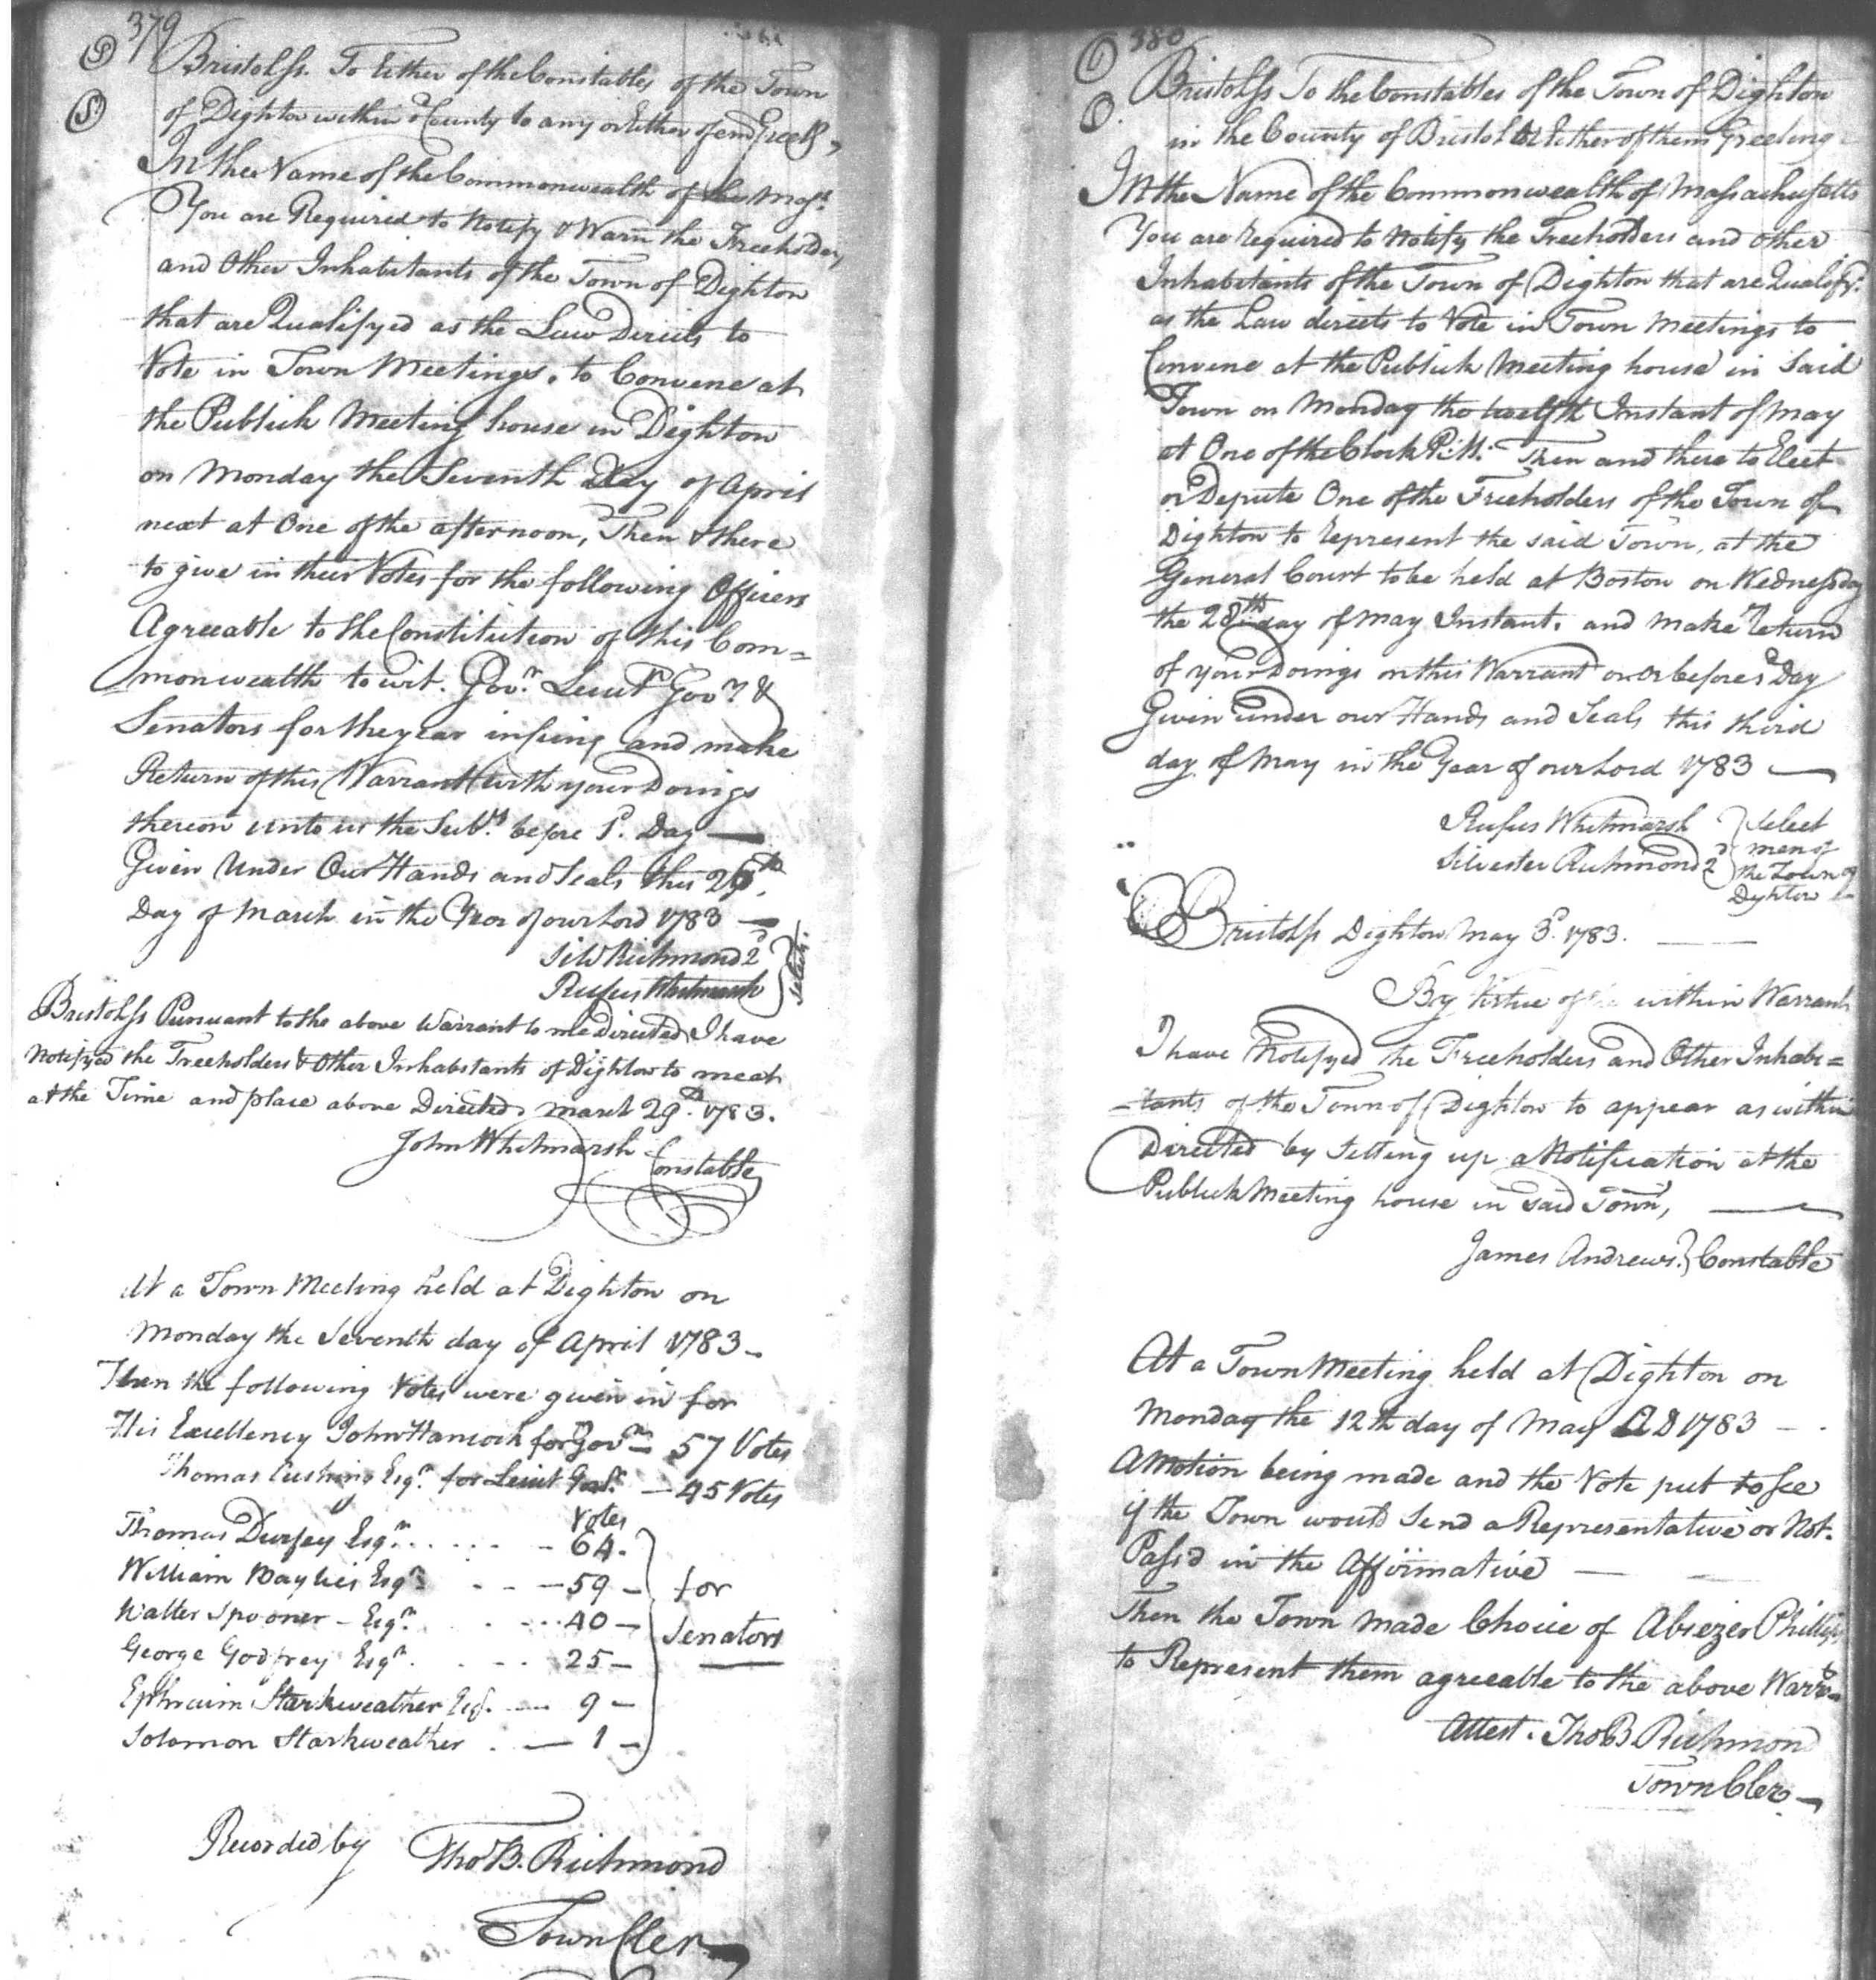 379
Bristolss. To Either of the Constables of the Town
of Dighton within County to any or Either of em Greetg,
In the Name of the Commonwealth of the Mass.
You are Required to Notify & Warn the Freeholders
and Other Inhabitants of the Town of Dighton
that are Qualifyed as the Law Directs to
Vote in Town Meetings. to Convene at
the Publick Meeting house in Dighton
on Monday the Seventh Day of April
next at One of the afternoon, Then & there
to give in their Votes for the following Officers
Agreeable to the Constitution of this Com=
monwealth to wit. Govr. Lieut Govr. &
Senators for the year insuing and make
Return of this Warrant with your Doings
thereon unto us the Subrs. before sd. Day —
Given Under Our Hands and Seals this th
Day of March in the Year of our Lord 1783 —
Silv Richmond 2d
Rufus Whitmarsh
Selectm.
Bristolss Pursuant to the above Warrant to me Directed I have
Notifyed the Freeholders & Other Inhabitants of Dighton to meat
at the Time and place above Directed March 29th. 1783.
John Whitmarsh Constable
At a Town Meeting held at Dighton on
Monday the Seventh day of April 1783 -
Then the following Votes were given in for
His Excellency John Hancock for Govr — 57 Votes
Thomas Cushing Esqr. for Lieut Govr. — 45 Votes
Votes
Thomas Durfey Esqr. . . . . . - 64.
William Baylies Esqr . . — 59 —
Walter Spooner — Esqr. . . . . 40 —
George Godfrey Esqr. . . . 25 —
Ephraim Starkweather Esq. — 9 —
Solomon Starkweather . — 1 —
for
Senators
Recorded by Tho B. Richmond
Town Cler
380
Bristolss To the Constables of the Town of Dighton
in the County of Bristol or Either of them Greeting
In the Name of the Commonwealth of Massachusetts
You are required to Notify the Freeholders and other
Inhabitants of the Town of Dighton that are Qualifyd.
as the Law directs to Vote in Town Meetings to
Convene at the Publick Meeting house in Said
Town on Monday the twelfth Instant of May
at One of the Clock P:M: Then and there to Elect
or Depute One of the Freeholders of the Town of
Dighton to Represent the said Town, at the
General Court to be held at Boston on Wednesday
the 28th day of May Instant. and make return
of your Doings on this Warrant on or before sd Day
Given under our Hands and Seals this third
day of May in the Year of our Lord 1783 —
Rufus Whitmarsh
Silvester Richmond 2d
Select
men of
the Town of
Dighton
Bristolss Dighton May 3d. 1783. —
By Virtue of the within Warrant
I have Notifyed the Freeholders and Other Inhabi=
-tants of the Town of Dighton to appear as within
Directed by Setting up a Notification at the
Publick Meeting house in said Town, —
James Andrews. } Constable
At a Town Meeting held at Dighton on
Monday the 12th day of May AD 1783 — .
A Motion being made and the Vote put to see
if the Town would Send a Representative or Not.
Pass'd in the Affirmative —
Then the Town made Choice of Abiezer Phillips
to Represent them agreeable to the above Warr
Attest. Tho B. Richmond
Town Cler —